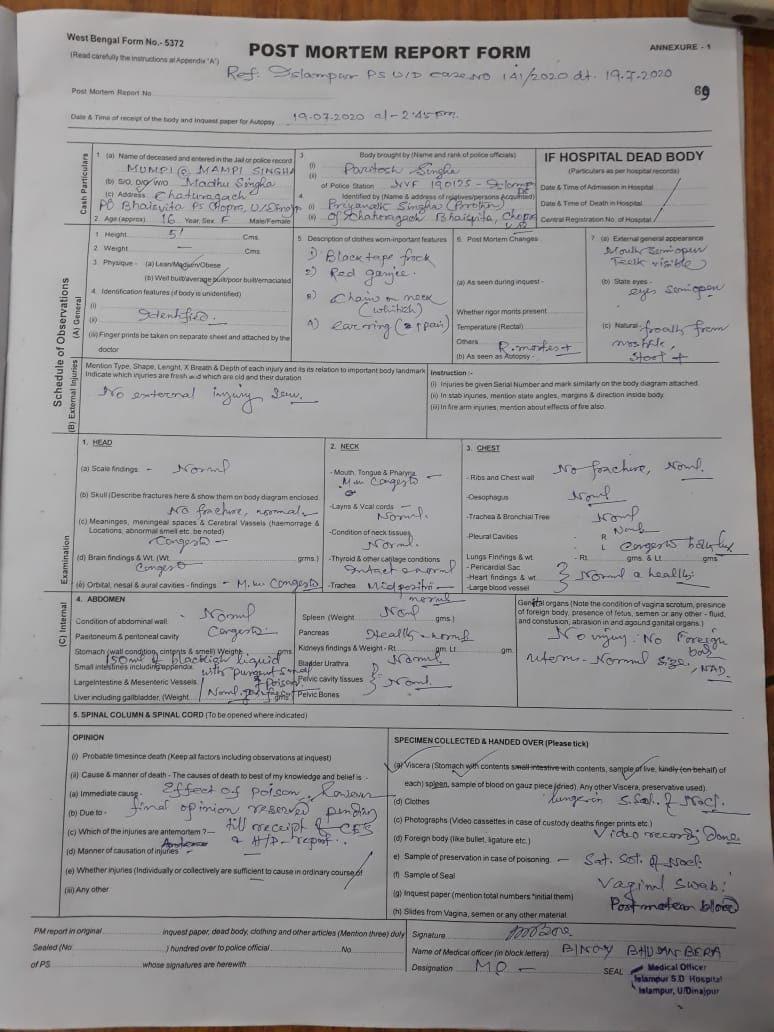 West Bengal Form No.- 5372
(Read carefully the Instructions at Appendix 'A')
POST MORTEM REPORT FORM
ANNEXURE - 1
Ref: Islampur PS U/D Case NO 141/2020 dt. 19-7-2020
Post Mortem Report No
69
Date & Time of receipt of the body and Inquest paper for Autopsy 19.07.2020 at - 2:45 pm.
Cash Particulars
1 (a) Name of deceased and entered in the Jail or police record
MUMPI @ MAMPI SINGHA
(b) S/O, D/O W/O Madhu Singha
(c) Address Chaturagach
PO Bhaispita PS Chopra, U/Dinajp
2. Age (approx) 16 Year, Sex F Male/Female
3 Body brought by (Name and rank of police officials)
(i)
(ii) Paritosh Singha
of Police Station NVF 190125 - Islampur PS
4. Identified by (Name & address of relatives/persons Acquainted)
(i) Priyanath Singha (Brother)
(ii) Of Chaturagach Bhaispita, Chopra
IF HOSPITAL DEAD BODY
(Particulars as per hospital records)
Date & Time of Admission in Hospital
Date & Time of Death in Hospital
Central Registration No. of Hospital
Schedule of Observations
(A) General
1 Height 5' Cms.
2 Weight — Cms.
3. Physique - (a) Lean/Medium/Obese
(b) Well built/average built/poor built/emaciated
4. Identification features (if body is unidentified)
(i)
(ii) Identified.
(iii) Finger prints be taken on separate sheet and attached by the
doctor
5 Description of clothes worn-important features
1) Black tape frock
2) Red ganjee.
3) Chain on neck
(whitish)
4) ear ring (1 pair)
6. Post Mortem Changes
(a) As seen during inquest -
Whether rigor monts present
Temperature (Rectal)
Others R. mortes +
(b) As seen as Autopsy -
7 (a) External general appearance
Mouth semiopen
Teeth visible
(b) State eyes -
eyes semiopen
(c) Natural froath from
nostrils,
stool +
(B) External Injuries
Mention Type, Shape, Lenght, X Breath & Depth of each injury and its its relation to important body landmark
Indicate which injuries are fresh and which are old and their duration
No external injury seen.
Instruction :-
(i) Injuries be given Serial Number and mark similarly on the body diagram attached.
(ii) In stab injuries, mention state angles, margins & direction inside body.
(iii) In fire arm injuries, mention about effects of fire also.
(C) Internal Examination
1. HEAD
(a) Scale findings - Norml
(b) Skull (Describe fractures here & show them on body diagram enclosed
No fracture, normal.
(c) Meaninges, meningeal spaces & Cerebral Vessels (haemorrage &
Locations, abnormal smell etc. be noted)
Congested
(d) Brain findings & Wt. (Wt. grms.)
Congested
(e) Orbital, nesal & aural cavities - findings - M.m Congested
2. NECK
-Mouth, Tongue & Pharynx
M.m Congested
-Layns & Vcal cords -
Normal.
-Condition of neck tissues
Normal.
-Thyroid & othe catilage conditions
Intact & normal
-Trachea Midposition
3. CHEST
-Ribs and Chest wall No fracture, Norml.
-Oesophagus Norml
-Trachea & Bronchial Tree Norml
-Pleural Cavities R Norml
L
Lungs Findings & wt - Rt gms & Lt gms
Congested both lungs
- Pericardial Sac
-Heart findings & wt
-Large blood vessel
Normal & healthy
4. ABDOMEN
Condition of abdominal wall Norml
Paeitoneum & peritoneal cavity Congested
Stomach (wall condition, contents & smell) Weight gms
150 ml of blackish liquid
Small intestines including appendix with pungent smell
LargeIntestine & Mesenteric Vessels of poison
Liver including gallbladder, (Weight Norml. gms
Spleen (Weight Norml gms.)
Pancreas Healthy - norml
Kidneys findings & Weight - Rt gm, Lt gm.
Bladder Urathra Normal.
Pelvic cavity tissues Norml.
Pelvic Bones
General organs (Note the condition of vagina scrotum, presence
of foreign body, presence of fetus, semen or any other - fluid,
and constusion, abrasion in and agound ganital organs.)
No injury. No Foreign
body
uterus - Normal size,
NAD.
5. SPINAL COLUMN & SPINAL CORD (To be opened where indicated)
OPINION
(i) Probable timesince death (Keep all factors including observations at inquest)
(ii) Cause & manner of death - The causes of death to best of my knowledge and belief is -
(a) Immediate cause - Effect of poison, however
(b) Due to - final opinion reserved pending
(c) Which of the injuries are antemortem ? - till receipt of CES
& H/P report.
(d) Manner of causation of injuries
(e) Whether injuries (Individually or collectively are sufficient to cause in ordinary course of
(iii) Any other
SPECIMEN COLLECTED & HANDED OVER (Please tick)
(a) Viscera (Stomach with contents small intestive with contents, sample of live, kindly (on behalf) of
each) spleen, sample of blood on gauz piece (dried). Any other Viscera, preservative used).
(d) Clothes lungs in S. Sol. of Nacl.
(c) Photographs (Video cassettes in case of custody deaths finger prints etc.)
(d) Foreign body (like bullet, ligature etc.) Video recording Done
e) Sample of preservation in case of poisoning. - Sat. Sol. of Nacl.
(f) Sample of Seal
Vaginal swab:
(g) Inquest paper (mention total numbers *initial them)
Postmortem blood
(h) Slides from Vagina, semen or any other material
PM report in original inquest paper, dead body, clothing and other articles (Mention three) duly
Sealed (No ) hundred over to police official No
of PS whose signatures are herewith
Signature
Name of Medical officer (in block letters) BINOY BHUSAN BERA
Designation MO -
SEAL
Medical Officer
Islampur S.D Hospital
Islampur, U/Dinajpur